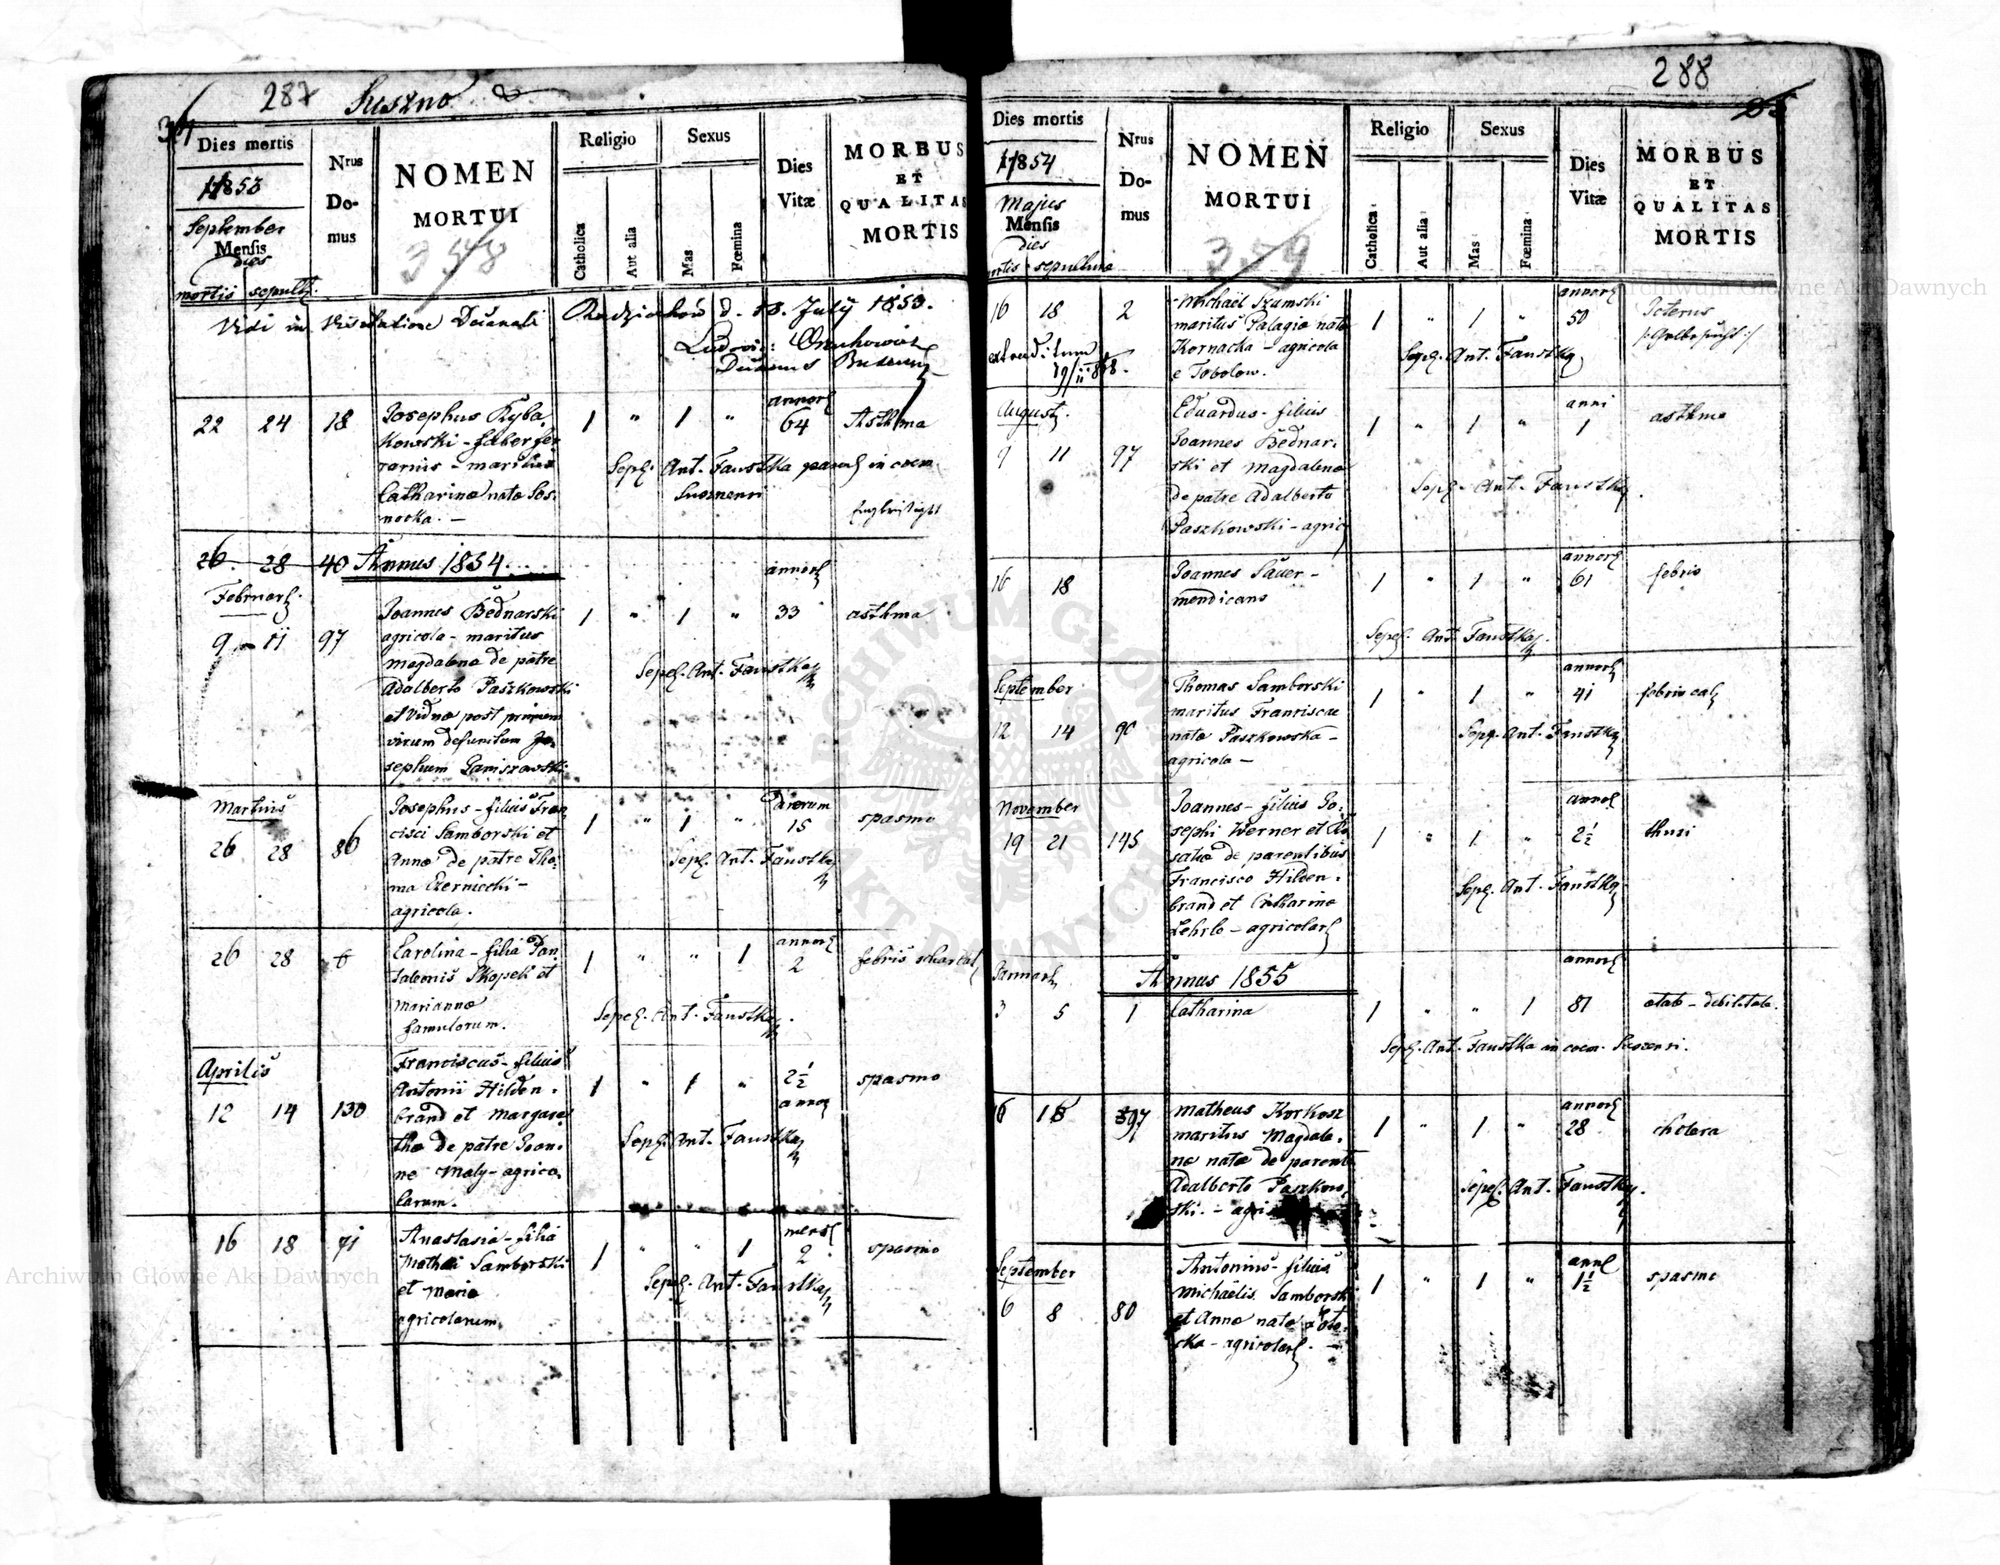 287 Suszno
Dies mortis
1853
September
Mensis
dies
mortis sepult.
Nrus
Do-
mus
NOMEN
MORTUI
358
Religio
Catholica
Aut alia
Sexus
Mas
Fœmina
Dies
Vitæ
MORBUS
ET
QUALITAS
MORTIS
Vidi in Visitatione Decanali Radziechów d. 18. July 1853.
22 24 18 Josephus Ryba
kowski - faber fer
rarius - maritus
Catharinæ nata Sos
nocka. -
1 " 1 "
annor
64
Asthma
Sepel. Ant. Faustka paroch in coem
Susznensi
26. 28 40 Annus 1854
Februar
9 11 97 Joannes Bednarski
agricola - maritus
Magdalenæ de patre
Adalberto Paszkowski
et viduæ post primum
virum defunctum Jo
sephum
1 " 1 "
annor
33
asthma
Sepel. Ant. Faustka
Martius
26 28 86 Josephus - filius Fran
cisci Samborski et
Annæ de patre Tho
ma Czernicki -
agricola.
1 " 1 "
dierum
15
spasmo
Sepel. Ant. Faustka
26 28 6 Carolina - filia Pan
taleonis Skopek et
Mariannæ
famulorum.
1 " " 1
annor
2
febris scharlat
Sepel. Ant. Faustka
Aprilis
12 14 130 Franciscus - filius
Antonii Hilden
brand et Margare
tha de patre Joan
ne Maly - agrico
larum.
1 " 1 "
2½
annor
spasmo
Sepel. Ant. Faustka
16 18 71 Anastasia - filia
Mathæi Samborski
et Maria
agricolarum
1 " " 1
mens
2
spasmo
Sepel. Ant. Faustka
288
Dies mortis
1854
Majus
Mensis
dies
mortis sepulturæ
Nrus
Do-
mus
NOMEN
MORTUI
359
Religio
Catholica
Aut alia
Sexus
Mas
Fœmina
Dies
Vitæ
MORBUS
ET
QUALITAS
MORTIS
16 18 2 Michaël Szumski
maritus Palagiæ nata
Kornacka - agricola
e Tobolow.
extraditum
1 " 1 "
annor
50
Icterus
/:Gelbsucht:/
Sepel. Ant. Faustka
August
9 11 97 Eduardus - filius
Joannes Bednar
ski et Magdalena
de patre Adalberto
Paszkowski - agric
1 " 1 "
anni
1
asthma
Sepel. Ant. Faustka
16 18 Joannes Sauer -
mendicans
1 " 1 "
annor
61
febris
Sepel. Ant. Faustka
September
12 14 90 Thomas Samborski
maritus Franciscæ
nata Paszkowska -
agricola -
1 " 1 "
annor
41
febris cal
Sepel. Ant. Faustka
November
19 21 145 Joannes - filius Jo
sephi Werner et Ro
saliæ de parentibus
Francisco Hilden
brand et Catharina
Lehrle - agricolar
1 " 1 "
annor
2½
tussi
Sepel. Ant. Faustka
Januar Annus 1855
3 5 1 Catharina
1 " " 1
annor
81
ætat - debilitate.
Sepel. Ant. Faustka in coem. Susznensi.
16 18 97 Matheus Korkosz
maritus Magdale
næ nata de parent
Adalberto Paszkow
ski. - agri
1 " 1 "
annor
28
cholera
Sepel. Ant. Faustka
September
6 8 80 Antonius - filius
Michaëlis Samborski
et Anna nata
cka - agricolar. -
1 " 1 "
ann
1½
spasmo
Archiwum Główne Akt Dawnych
Archiwum Główne Akt Dawnych
ARCHIWUM GŁÓWNE AKT DAWNYCH